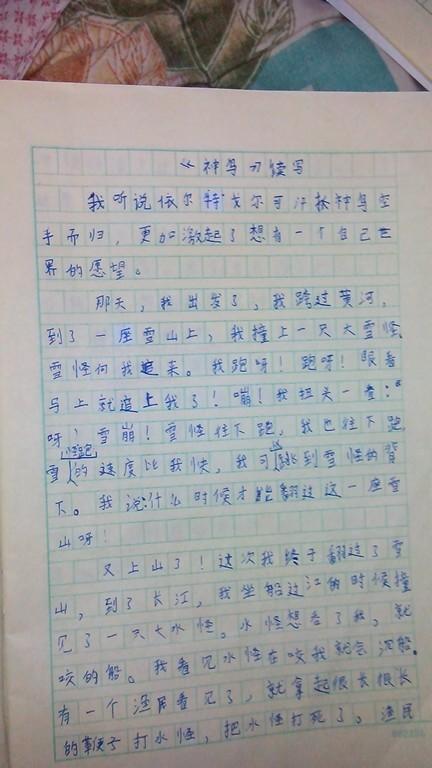 《神鸟》续写
我听说依尔特戈尔可汗找神鸟空
手而归，更加激起了想有一个自己世
界的愿望。
那天，我出发了，我跨过黄河，
到了一座雪山上，我撞上一只大雪怪，
雪怪向我追来。我跑呀！跑呀！眼看
马上就追上我了！嘣！我扭头一看：“
呀！雪崩！雪怪往下跑，我也往下跑
雪怪跑的速度比我快，我可以跳到雪怪的背
下。我说：什么时候才能翻过这一座雪
山呀！
又上山了！这次我终于翻过了雪
山，到了长江，我坐船过江的时候撞
见了一只大水怪。水怪想吞了我，就
咬的船。我看见水怪在咬我就会沉船。
有一个渔民看见了，就拿起很长很长
的鞭子打水怪，把水怪打死了。渔民